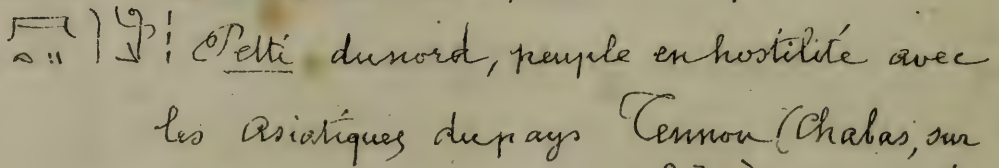 Petti du nord, peuple en hostilité avec
les asiatiques du pays Tennou (Chabas, sur